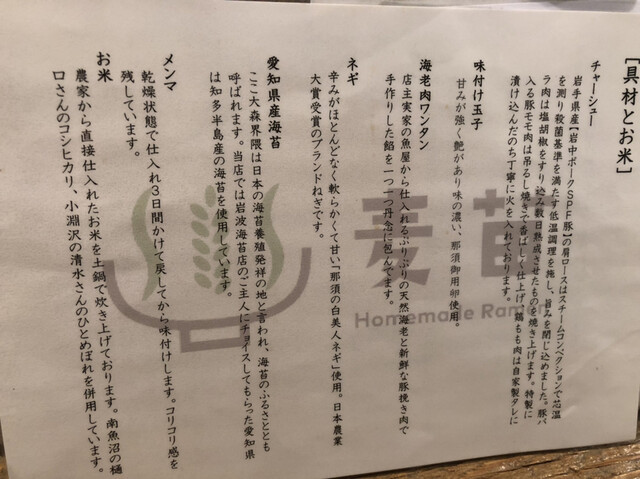 ［具材とお米］
チャーシュー
岩手県産【岩中ポークＳＰＦ豚】の肩ロースはスチームコンベクションで芯温
を測り殺菌基準を満たす低温調理を施し、旨みを閉じ込めました。豚バ
ラ肉は塩胡椒をすり込み数日熟成させたものを焼き上げます。特製に
入る豚モモ肉は吊るし焼きで香ばしく仕上げ、鶏もも肉は自家製タレに
漬け込んだのち丁寧に火を入れております。
味付け玉子
甘みが強く艶があり味の濃い、那須御用卵使用。
海老肉ワンタン
店主実家の魚屋から仕入れるぷりぷりの天然海老と新鮮な豚挽き肉で
手作りした餡を一つ一つ丹念に包んでます。
ネギ
辛みがほとんどなく軟らかくて甘い「那須の白美人ネギ」使用。日本農業
大賞受賞のブランドねぎです。
愛知県産海苔
ここ大森界隈は日本の海苔養殖発祥の地と言われ、海苔のふるさととも
呼ばれます。当店では岩波海苔店のご主人にチョイスしてもらった愛知県
は知多半島産の海苔を使用しています。
メンマ
乾燥状態で仕入れ３日間かけて戻してから味付けします。コリコリ感を
残しています。
お米
農家から直接仕入れたお米を土鍋で炊き上げております。南魚沼の樋
口さんのコシヒカリ、小淵沢の清水さんのひとめぼれを併用しています。
麦苗
Homemade Ramen